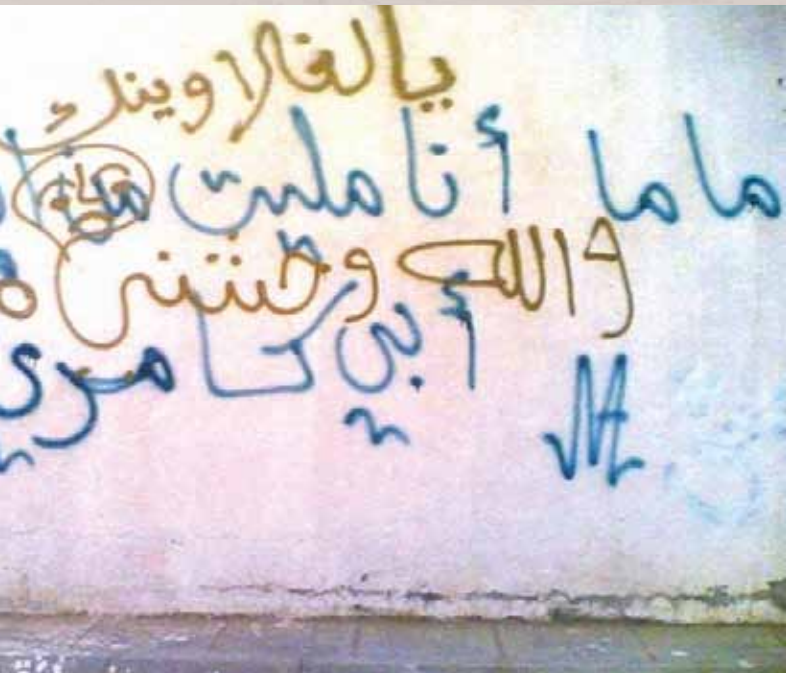 يالغلا وينك
ماما أنا مليت
والله وحشتني
أبي كامري